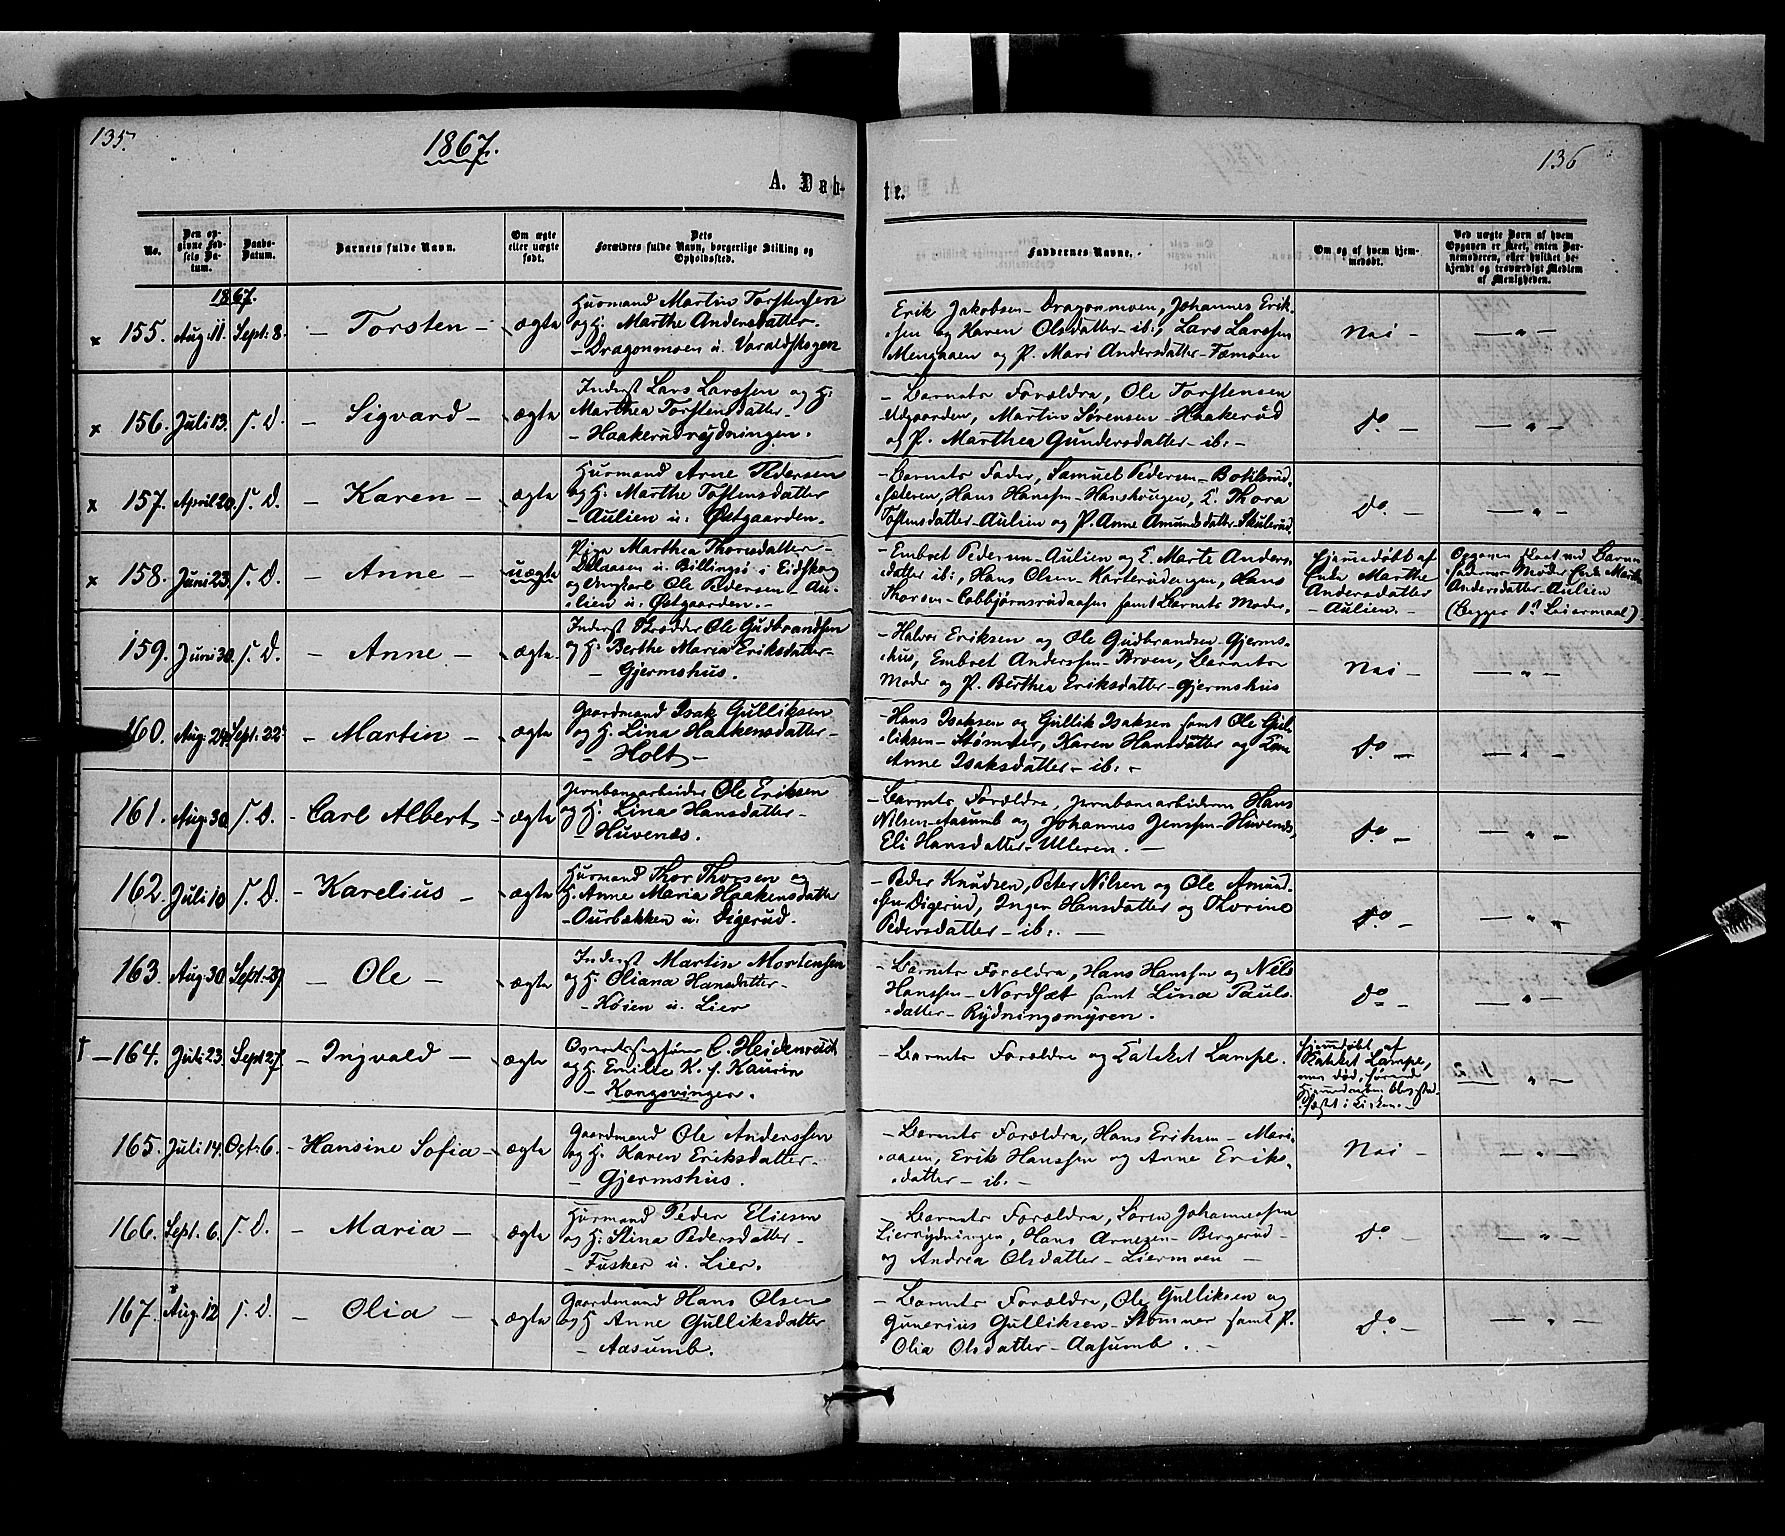 135.
1867.
A. Døb-
No.
Den opgivne Fødsels Datum.
Daabs-Datum.
Barnets fulde Navn.
Om ægte eller uægte født.
Dets Forældres fulde Navn, borgerlige Stilling og Opholdssted.
1867.
x 155. Aug. 11. Sept. 8. – Torsten – ægte
Huusmand Martin Torstensen
og H. Marthe Andersdatter
– Dragonmoen u. Varaldskogen
x 156. Juli 13. s. D. – Sigvard – ægte
Inderst Lars Larssen og H.
Marthea Torstensdatter –
– Haakerudrydningen.
x 157. April 20. s. D. – Karen – ægte
Huusmand Arne Pedersen
og H. Marthe Tostensdatter
– Aulien u. Østgaarden.
x 158. Juni 23. s. D. – Anne – uægte
Pige Marthea Thorsdatter –
u. Billingsø i Eidskog
og Ungkarl Ole Pedersen – Au-
lien u. Østgaarden. –
159. Juni 30. s. D. – Anne – ægte
Inderst Skrædder Ole Gudbrandsen
og H. Berthe Maria Eriksdatter –
– Gjermshus.
160. Aug. 24. Sept. 22. – Martin – ægte
Gaardmand Isak Gulliksen
og H. Lina Haakensdatter –
– Holt –
161. Aug. 30. s. D. – Carl Albert – ægte
Jernbanearbeider Ole Eriksen
og H. Lina Hansdatter –
– Huvenæs.
162. Juli 10. s. D. – Karelius – ægte
Huusmand Thor Thorsen og
H. Anne Maria Haakensdatter
– Ourbakken u. Digerud.
163. Aug. 30. Sept. 29. – Ole – ægte
Inderst Martin Mortensen
og H. Oliana Hansdatter –
– Høien u. Lier
† – 164. Juli 23. Sept. 27. – Ingvald – ægte
C. Heidenreich
og H. Emilie K. f. Kaurin
– Kongsvinger.
165. Juli 14. Oct. 6. – Hansine Sofia – ægte
Gaardmand Ole Anderssen
og H. Karen Eriksdatter –
– Gjermshus.
166. Sept. 6. s. D. – Maria – ægte
Huusmand Peder Eliesen
og H. Stina Pedersdatter –
– Fusker u. Lier.
167. Aug. 12. s. D. – Olia – ægte
Gaardmand Hans Olsen
og H. Anne Gulliksdatter
– Aasumb.
136
te.
Faddernes Navne.
Om og af hvem hjemmedøbt.
Ved uægte Børn af hvem Opgaven er skeet, enten Barnemoderen, eller hvilket bekjendt og troværdigt Medlem af Menigheden.
Erik Jakobsen – Dragonmoen, Johannes Erik-
sen og Karen Olsdatter – ib:, Lars Larssen
Mengaaen og P. Mari Andersdatter – Tømoen
Nei – — " —
– Barnets Forældre, Ole Torstensen
Udgaarden, Martin Sørensen – Haakerud
og P. Marthea Gundersdatter – ib: –
do – — " —
– Barnets Fader, Samuel Pedersen – Botilsrud-
sæteren, Hans Hanssen – Hanskrogen, E. Thora
Tostensdatter – Aulien og P. Anne Amundsdatter – Skulerud
do. – — " —
– Embret Pedersen – Aulien og E. Marte Anders-
datter ib:, Hans Olsen – Karterudengen, Hans
Thorsen – samt Barnets Moder.
Hjemmedøbt af
Enke Marthe
Andersdatter
– Aulien. –
Opgaven skeet ved Barne-
faderens Moder Enke Marthe
Andersdatter – Aulien
(Begges 1ste Leiermaal)
– Halvor Eriksen og Ole Gudbrandsen – Gjerms-
hus, Embret Anderssen – Broen, Barnets
Moder og P. Berthea Eriksdatter – Gjermshus
Nei – — " —
– Hans Isaksen og Gullik Isaksen samt Ole Gul-
liksen – Stømner, Karen Hansdatter og
Anne Isaksdatter – ib: –
do – — " —
– Barnets Forældre, Jernbanearbeiderne Hans
Nilsen – Aasumb og Johannes Jenssen – Huvenæs,
Eli Hansdatter – Ulleren. –
do – — " —
– Peder Knudsen, Peter Nilsen og Ole Amund-
sen Digerud, Inger Hansdatter og Thorine
Pedersdatter – ib: –
do – — " —
– Barnets Forældre, Hans Hanssen og Nils
Hanssen – Nordsæt samt Lina Pauls-
datter – Rydningsmyren.
do – — " —
– Barnets Forældre og Kateket Lampe.
Hjemmedøbt af
Kateket Lampe,
men død, førend
Hjemmedaaben blev stad-
fæstet i Kirken. –
— " —
– Barnets Forældre, Hans Eriksen – Mari-
aasen, Erik Hanssen og Anne Eriks-
datter – ib. –
Nei – — " —
– Barnets Forældre, Søren Johannessen
Lierrydningen, Hans Arnesen – Bergerud –
og Andrea Olsdatter – Liermoen –
do – — " —
– Barnets Forældre, Ole Gulliksen og
Gunerius Gulliksen – Stømner samt P.
Olia Olsdatter – Aasumb. –
do – — " —